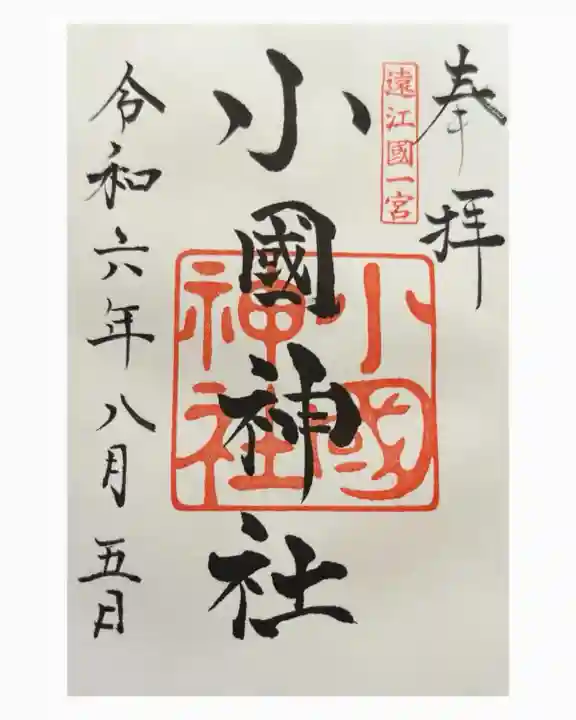 奉拝
遠江國一宮
小國神社
小國神社
令和六年八月五日